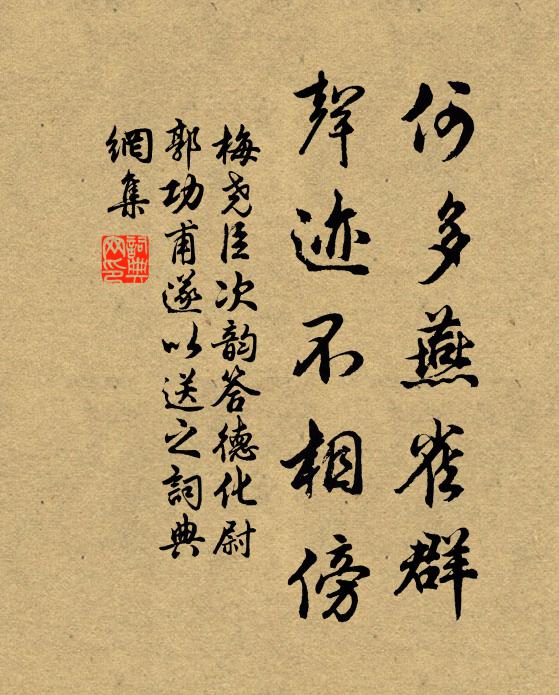 何多燕雀群
聲迹不相傍
梅堯臣次韵答德化尉
郭功甫遂以送之詞典
網集
詞典网印